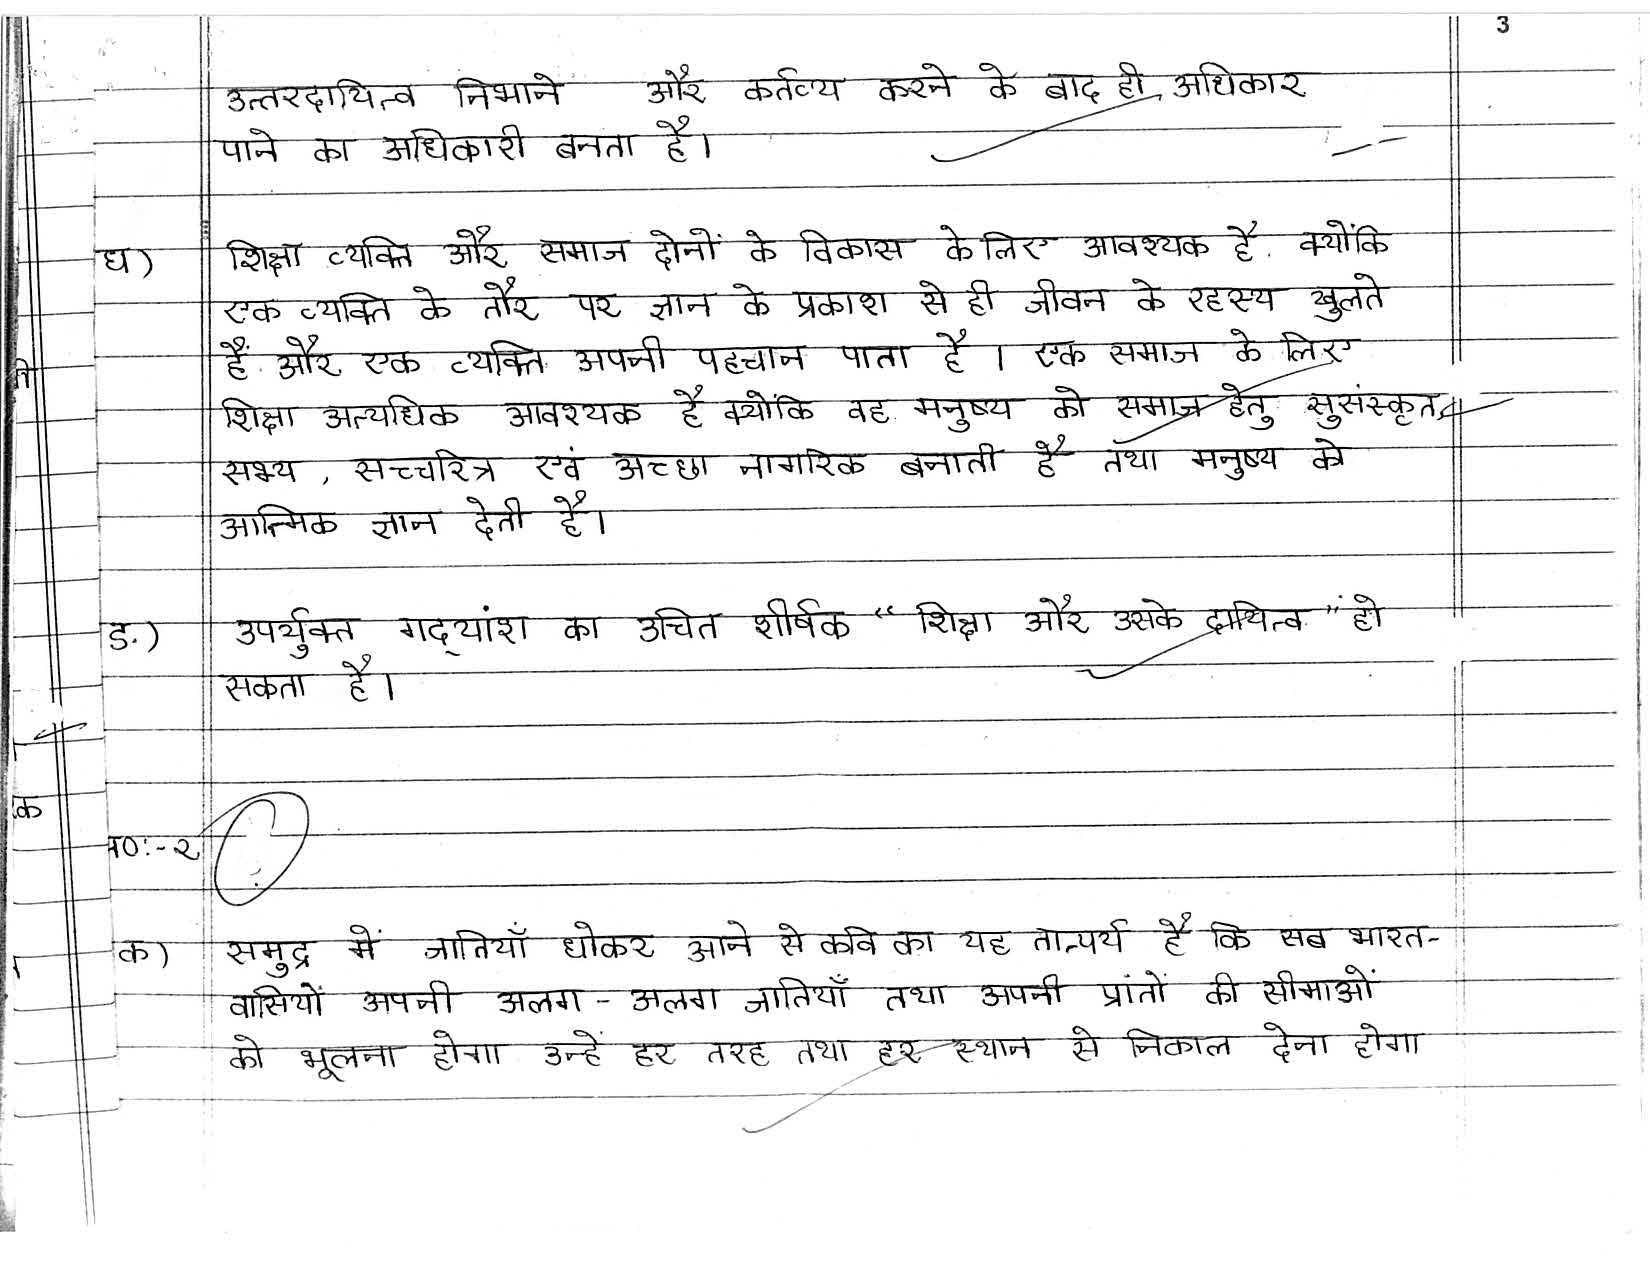 3
उत्तरदायित्व निभाने और कर्तव्य करने के बाद ही अधिकार
पाने का अधिकारी बनता है।
घ) शिक्षा व्यक्ति और समाज दोनों के विकास के लिए आवश्यक है. क्योंकि
एक व्यक्ति के तौर पर ज्ञान के प्रकाश से ही जीवन के रहस्य खुलते
हैं और एक व्यक्ति अपनी पहचान पाता है । एक समाज के लिए
शिक्षा अत्यधिक आवश्यक है क्योंकि वह मनुष्य को समाज हेतु सुसंस्कृत,
सभ्य , सच्चरित्र एवं अच्छा नागरिक बनाती है तथा मनुष्य को
आत्मिक ज्ञान देती है।
ड.) उपर्युक्त गद्यांश का उचित शीर्षक “ शिक्षा और उसके दायित्व ” हो
सकता है।
क
न0:-२
क) समुद्र में जातियाँ धोकर आने से कवि का यह तात्पर्य है कि सब भारत-
वासियों अपनी अलग - अलग जातियाँ तथा अपनी प्रांतों की सीमाओं
को भूलना होगा उन्हें हर तरह तथा हर स्थान से निकाल देना होगा